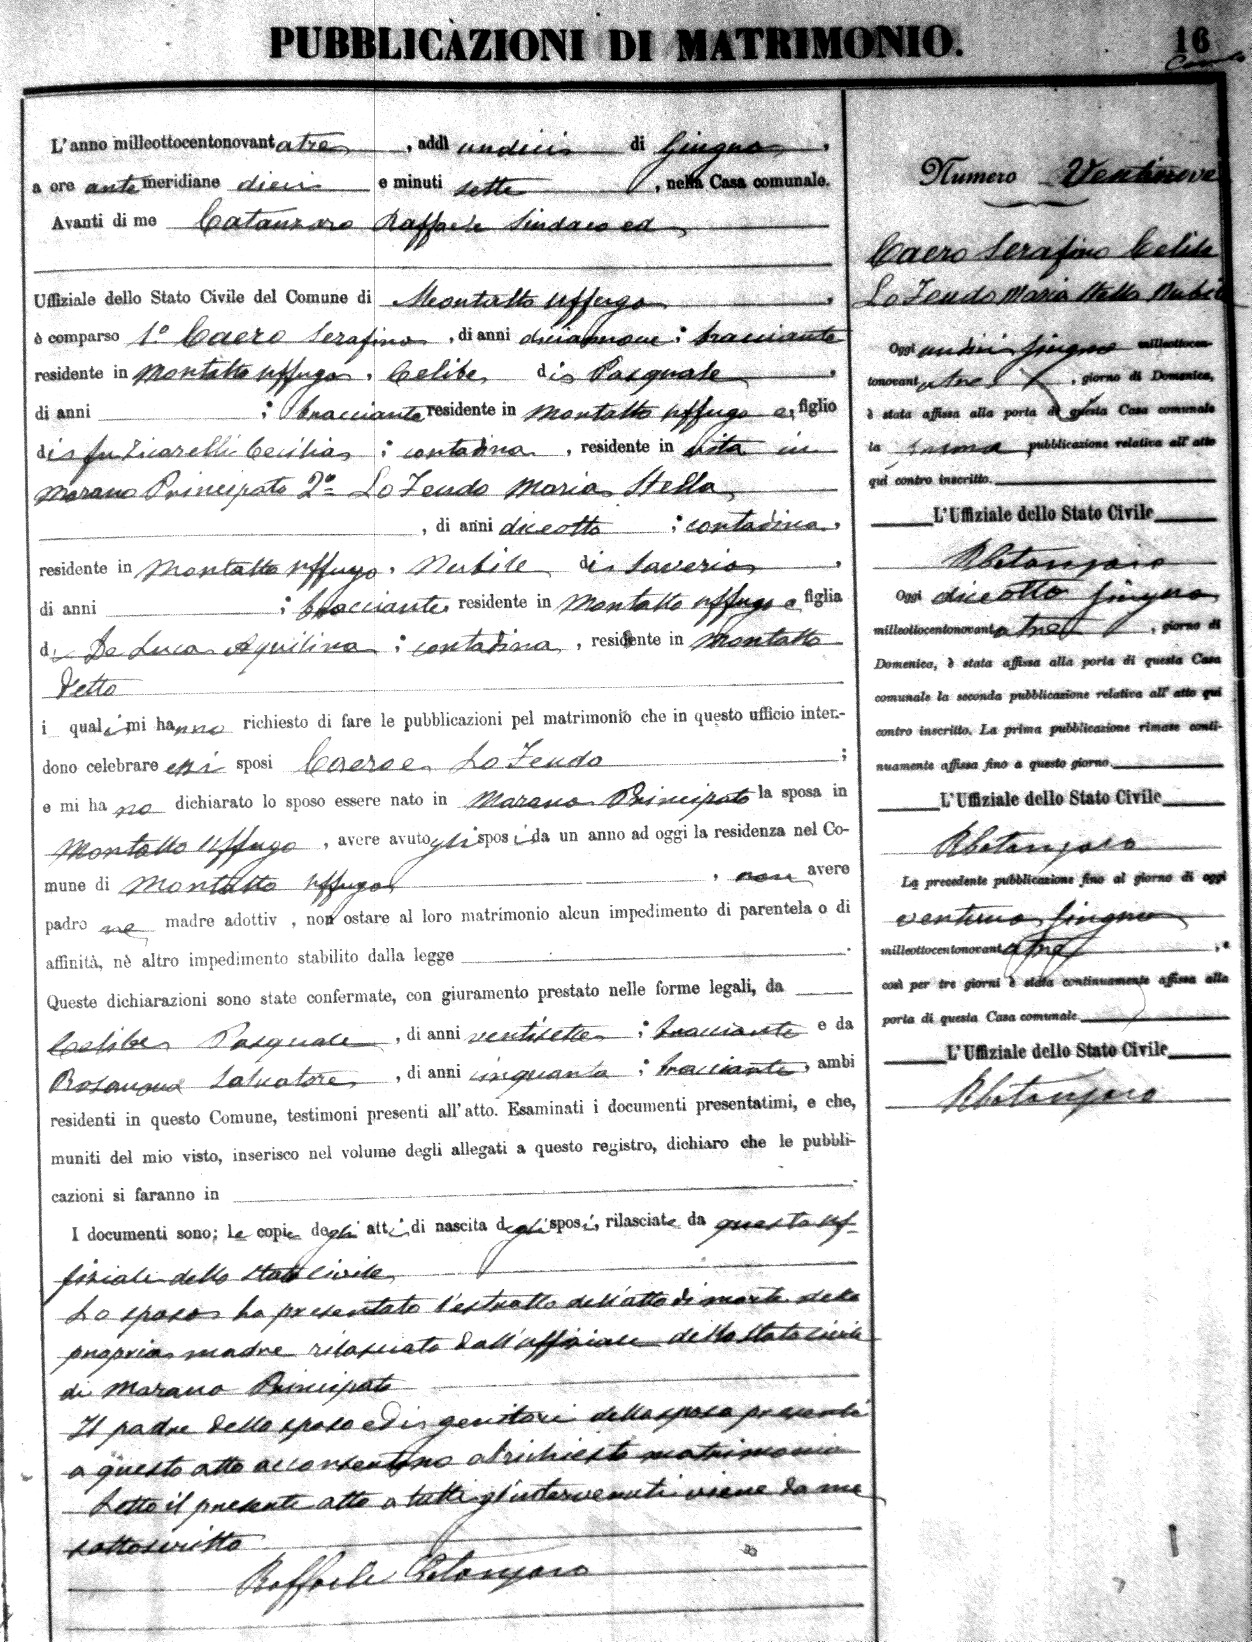 PUBBLICAZIONI DI MATRIMONIO.
16
L'anno milleottocentonovantatre, addì undici di Giugno,
a ore antemeridiane dieci e minuti sette, nella Casa comunale.
Avanti di me Catanzaro Raffaele Sindaco ed
Uffiziale dello Stato Civile del Comune di Montalto Uffugo,
è comparso 1º Caero Serafino, di anni diciannove; bracciante
residente in Montalto Uffugo, Celibe, di Pasquale,
di anni ; bracciante residente in Montalto Uffugo e, figlio
di fu Zicarelli Cecilia; contadina, residente in vita in
Marano Principato 2º Lo Feudo Maria Stella
, di anni diciotto; contadina,
residente in Montalto Uffugo, Nubile di Saverio,
di anni ; bracciante residente in Montalto Uffugo e figlia
di De Luca Aquilina; contadina, residente in Montalto
detto
i quali mi hanno richiesto di fare le pubblicazioni pel matrimonio che in questo ufficio inten-
dono celebrare essi sposi Caero e Lo Feudo;
e mi hanno dichiarato lo sposo essere nato in Marano Principato la sposa in
Montalto Uffugo, avere avuto gli sposi da un anno ad oggi la residenza nel Co-
mune di Montalto Uffugo, non avere
padre ne madre adottiv , non ostare al loro matrimonio alcun impedimento di parentela o di
affinità, nè altro impedimento stabilito dalla legge .
Queste dichiarazioni sono state confermate, con giuramento prestato nelle forme legali, da
Celibe Pasquale, di anni ventisette; bracciante e da
Salvatore, di anni cinquanta; bracciante, ambi
residenti in questo Comune, testimoni presenti all'atto. Esaminati i documenti presentatimi, e che,
muniti del mio visto, inserisco nel volume degli allegati a questo registro, dichiaro che le pubbli-
cazioni si faranno in .
I documenti sono; le copie degli atti di nascita degli sposi, rilasciate da questo uf-
fiziale dello stato civile
Lo sposo ha presentato l'estratto dell'atto di morte della
propria madre rilasciato dall'uffiziale dello stato civile
di Marano Principato
Il padre dello sposo ed i genitori della sposa presenti
a questo atto acconsentono al richiesto matrimonio
Letto il presente atto a tutti gl'intervenuti viene da me
sottoscritto
Raffaele Catanzaro
Numero Ventinove
Caero Serafino Celibe
Lo Feudo Maria Stella Nubile
Oggi undici Giugno milleottocen-
tonovantatre, giorno di Domenica,
è stata affissa alla porta di questa Casa comunale
la prima pubblicazione relativa all'atto
qui contro inscritto.
L'Uffiziale dello Stato Civile
RCatanzaro
Oggi diciotto Giugno
milleottocentonovantatre, giorno di
Domenica, è stata affissa alla porta di questa Casa
comunale la seconda pubblicazione relativa all'atto qui
contro inscritto. La prima pubblicazione rimase conti-
nuamente affissa fino a questo giorno.
L'Uffiziale dello Stato Civile
RCatanzaro
La precedente pubblicazione fino al giorno di oggi
ventuno Giugno
milleottocentonovantatre, e
così per tre giorni è stata continuamente affissa alla
porta di questa Casa comunale.
L'Uffiziale dello Stato Civile
RCatanzaro